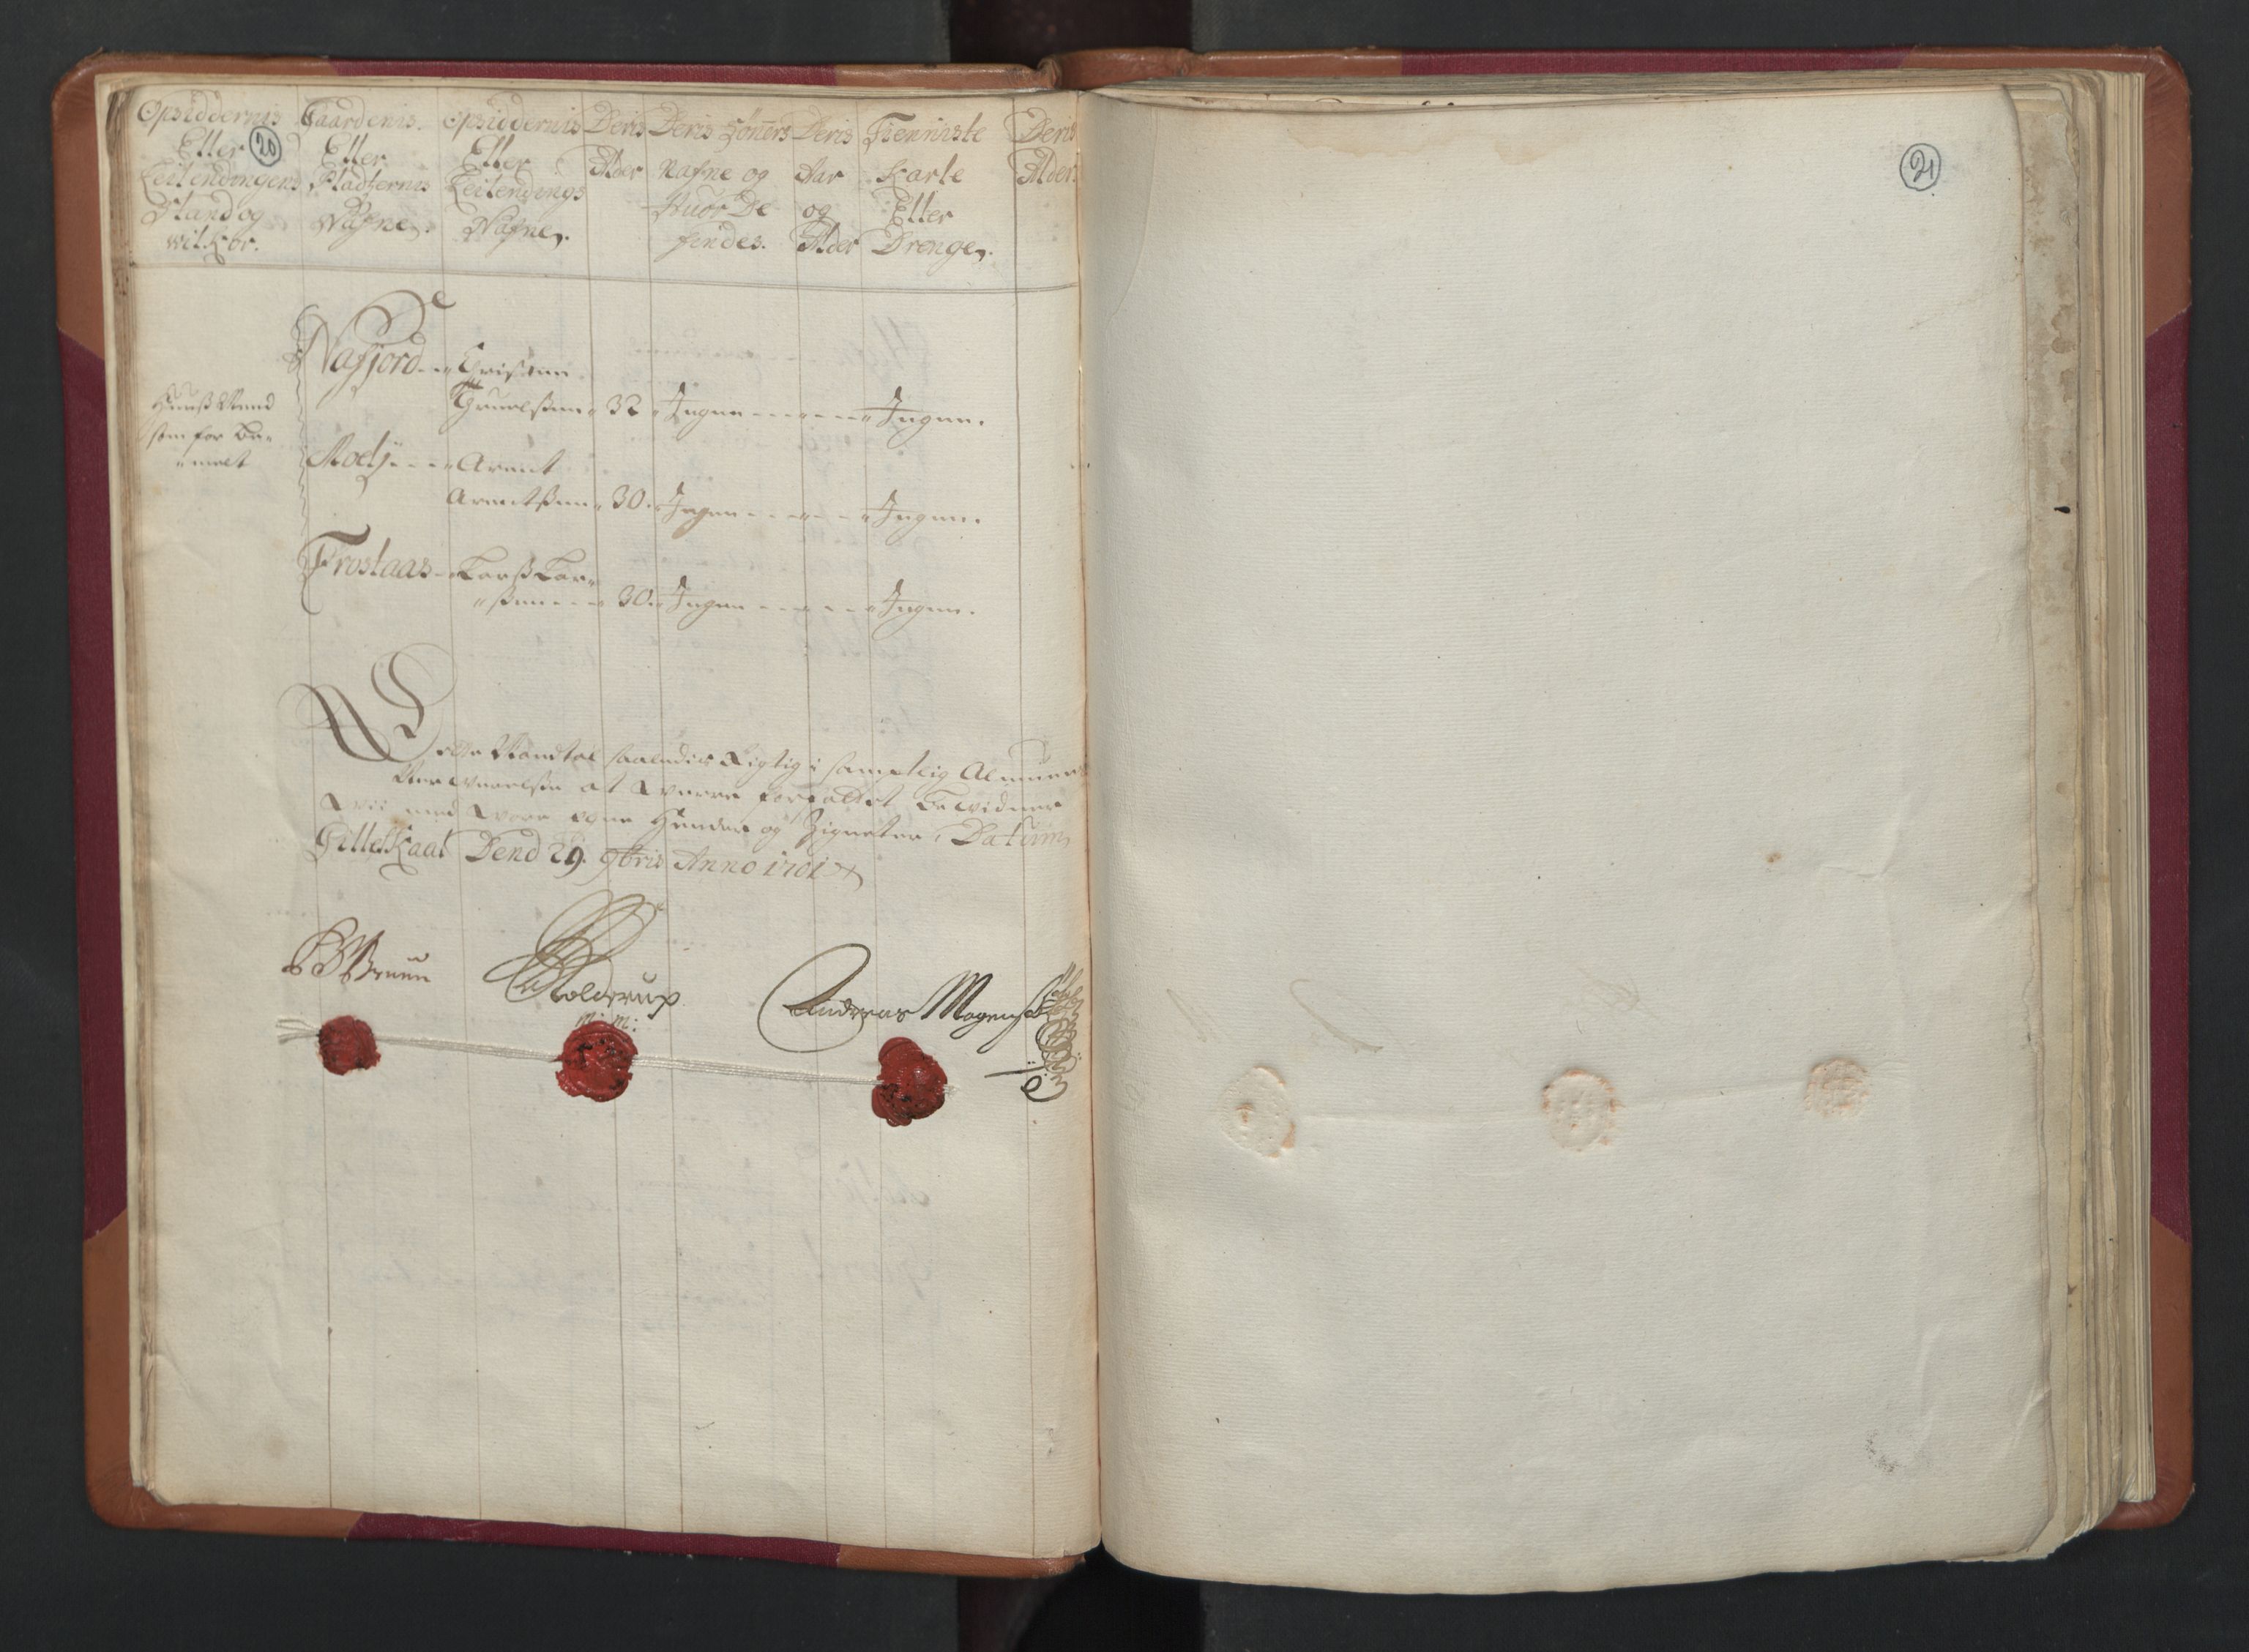 Opsiddernis
Eller
Leilendingens
Stand og
wilkor.
Gaardenis
Eller
Pladzernis
Nafne.
Opsiddernis
Eller
Leilendings
Nafne.
Deris
Alder
Deris Sönners
Nafne og
Huor De
findes.
Deris
Aar
og
Alder
Tienniste
Karle
Eller
Drenge.
Deris
Alder
20
21
Nafjord
32 Ingen Ingen.
Huuß Mend
som for be-
melt
Arent
Arentßen 30. Ingen Ingen.
Frostaas Larß Lar-
ßen 30. Ingen Ingen.
Dette Mandtal saaledis Rigtig i samptlig Almuens
Nerwærelse at være forfattet, Bewidner
med vore egne Hender og Zigneter, Datum
Gilleskaal Dend 29. 9bris Anno 1701
Bruun
Holderup
m: m:
Andreas Mogenß